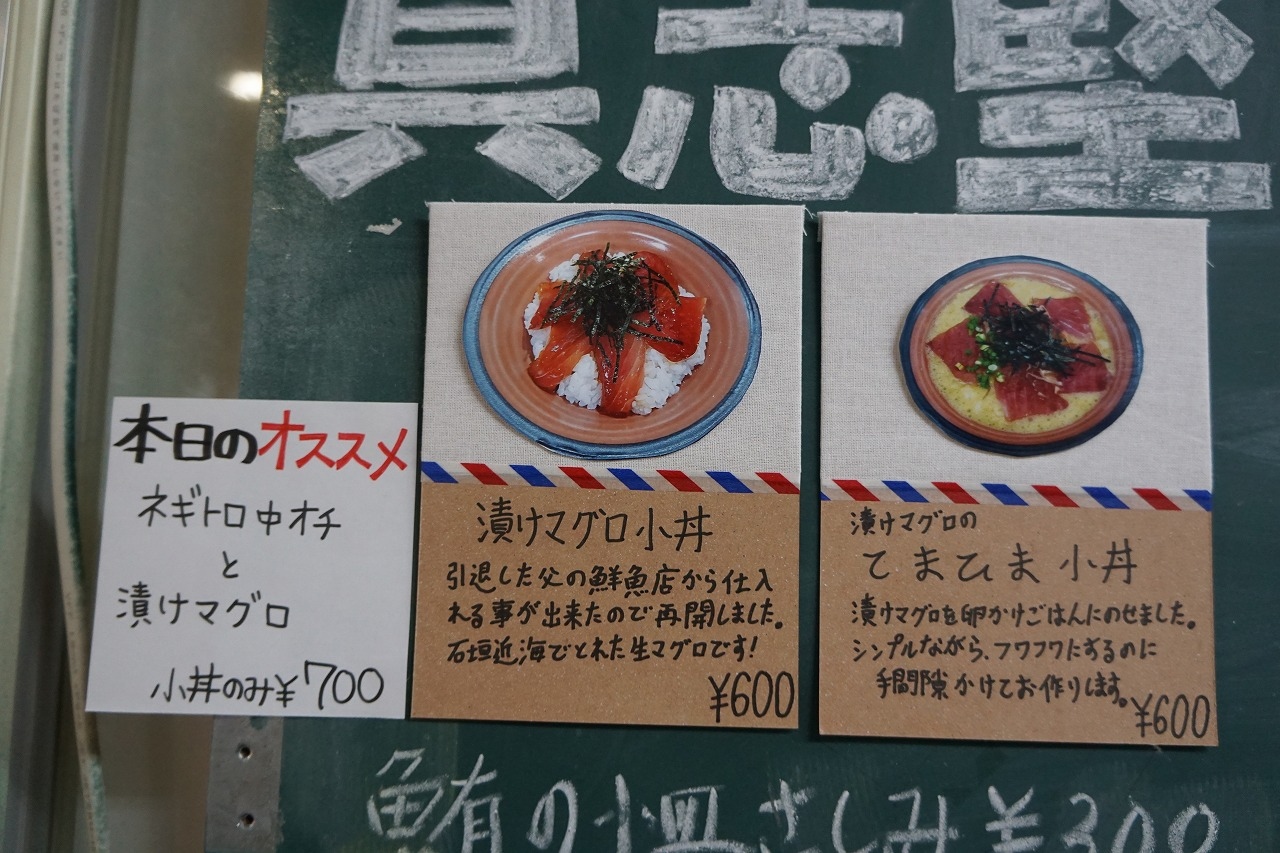 本日のオススメ
ネギトロ中オチ
と
漬けマグロ
小丼のみ¥700
漬けマグロ小丼
引退した父の鮮魚店から仕入
れる事が出来たので再開しました。
石垣近海でとれた生マグロです!
¥600
漬けマグロの
てまひま小丼
漬けマグロを卵かけごはんにのせました。
シンプルながら、フワフワにするのに
手間隙かけてお作りします。
¥600
鮪の小皿さしみ¥300